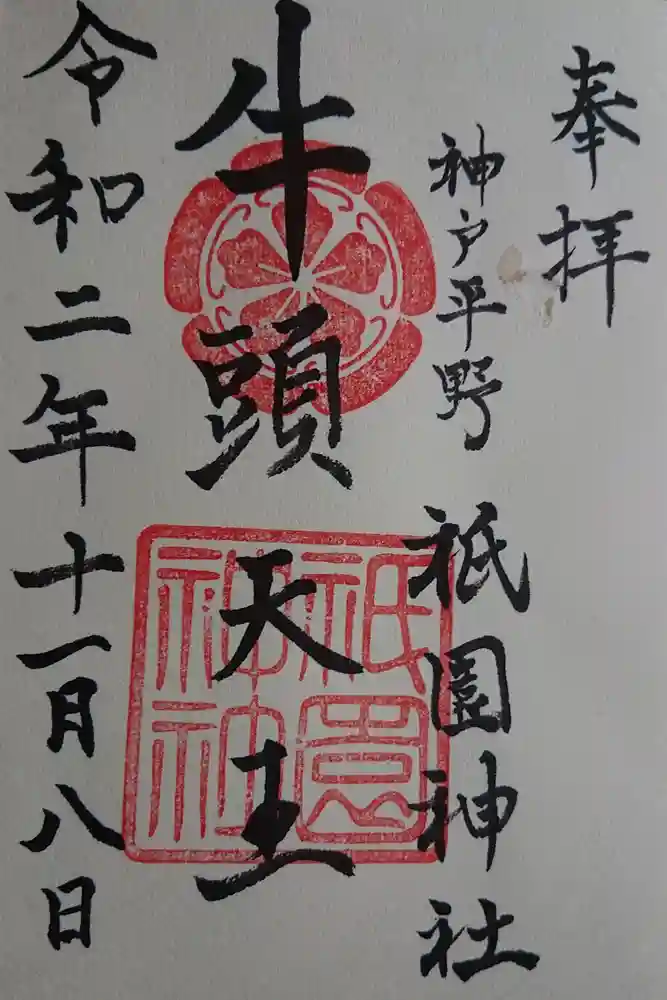 奉拝
神戸平野
祇園神社
牛頭天王
祇園
神社
令和二年十一月八日